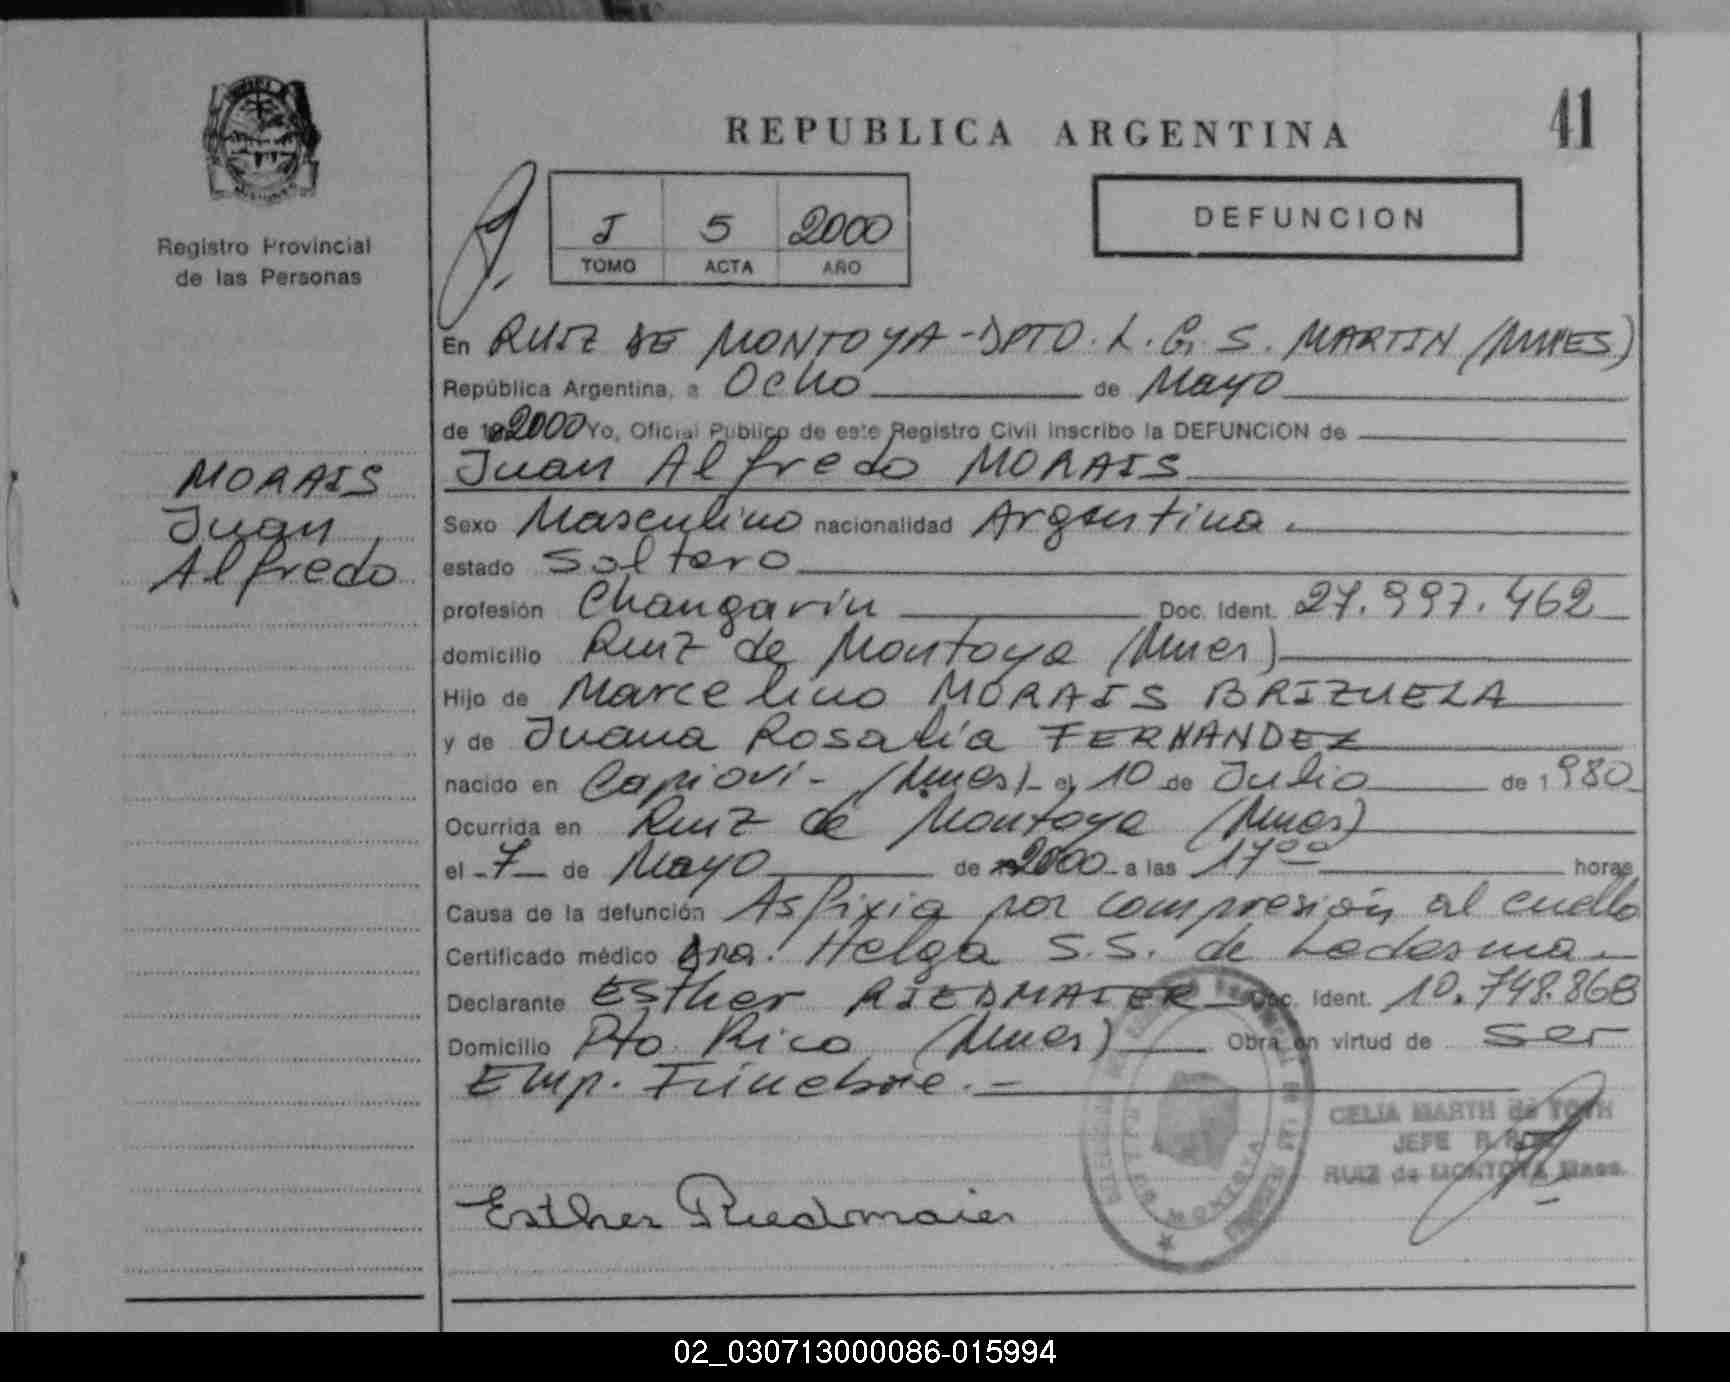 REPUBLICA ARGENTINA
41
Registro Provincial
de las Personas
J 5 2000
TOMO ACTA AÑO
DEFUNCION
En RUIZ DE MONTOYA - DPTO. L. G. S. MARTIN (MNES)
República Argentina, a Ocho de Mayo
de 2000 Yo, Oficial Público de este Registro Civil inscribo la DEFUNCION de
MORAIS
Juan
Alfredo
Juan Alfredo MORAIS
Sexo Masculino nacionalidad Argentina.
estado Soltero
profesión Changarín Doc. Ident. 27.997.462
domicilio Ruiz de Montoya (Mnes)
Hijo de Marcelino MORAIS BRIZUELA
y de Juana Rosalía FERNANDEZ
nacido en Capioví - (Mnes) - el 10 de Julio de 1980
Ocurrida en Ruiz de Montoya (Mnes)
el 7 de Mayo de 2000 a las 17 00 horas
Causa de la defunción Asfixia por compresión al cuello
Certificado médico Dra. Helga S.S. de Ledesma
Declarante Esther RIEDMAIER Doc. Ident. 10.748.868
Domicilio Pto Rico (Mnes) Obra en virtud de ser
Emp. Fúnebre. -
CELIA MARTH de TOTH
JEFE
RUIZ de MONTOYA Mnes.
Esther Riedmaier
02_030713000086-015994